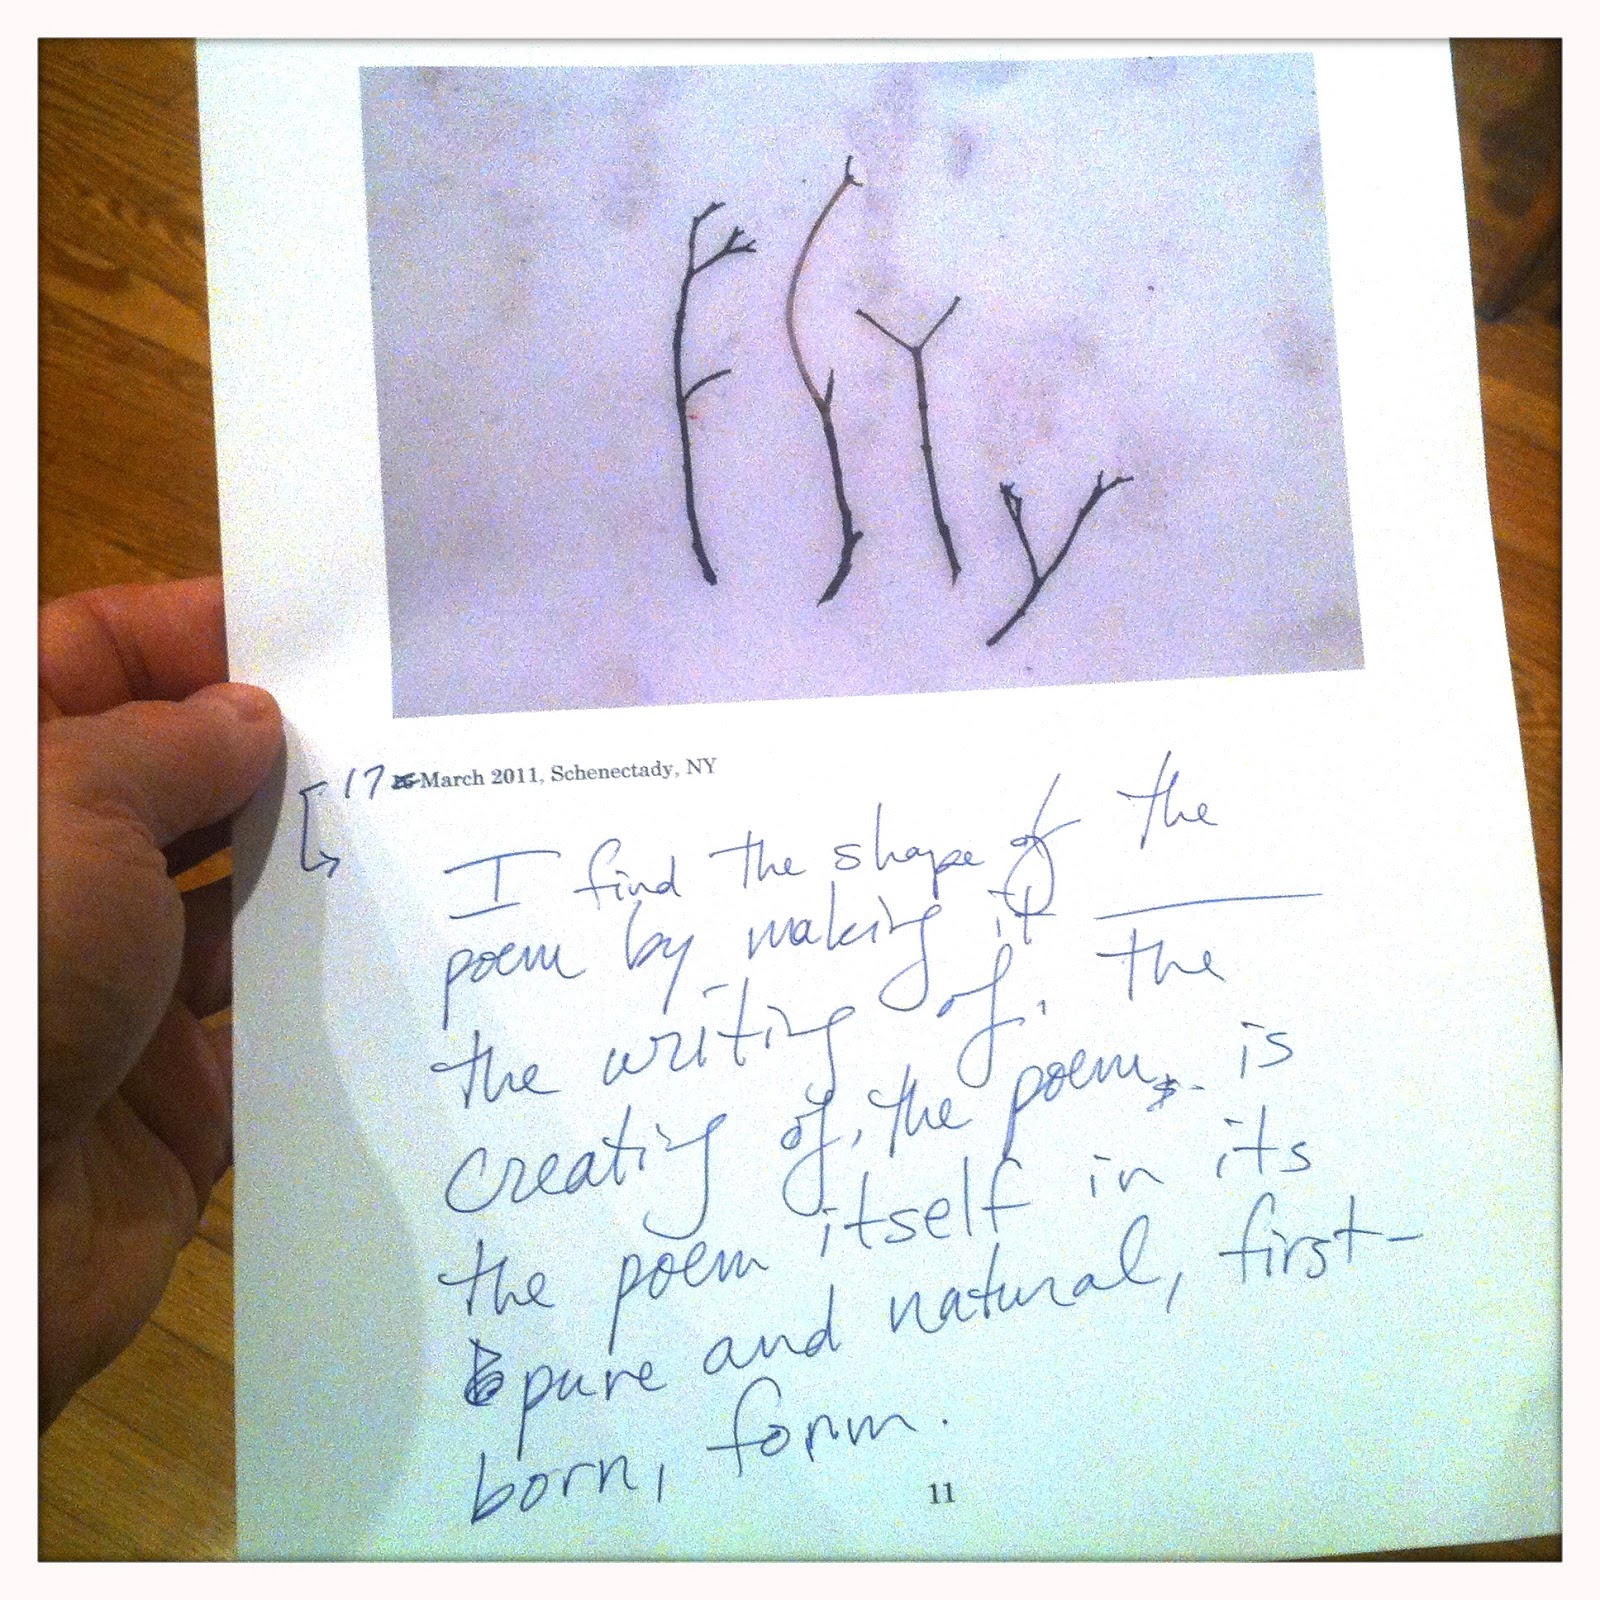 FSYy
17 March 2011, Schenectady, NY
I find the shape of the
poem by making it ——
the writing of, the
creating of, the poem, is
the poem itself in its
pure and natural, first-
born, form.
11